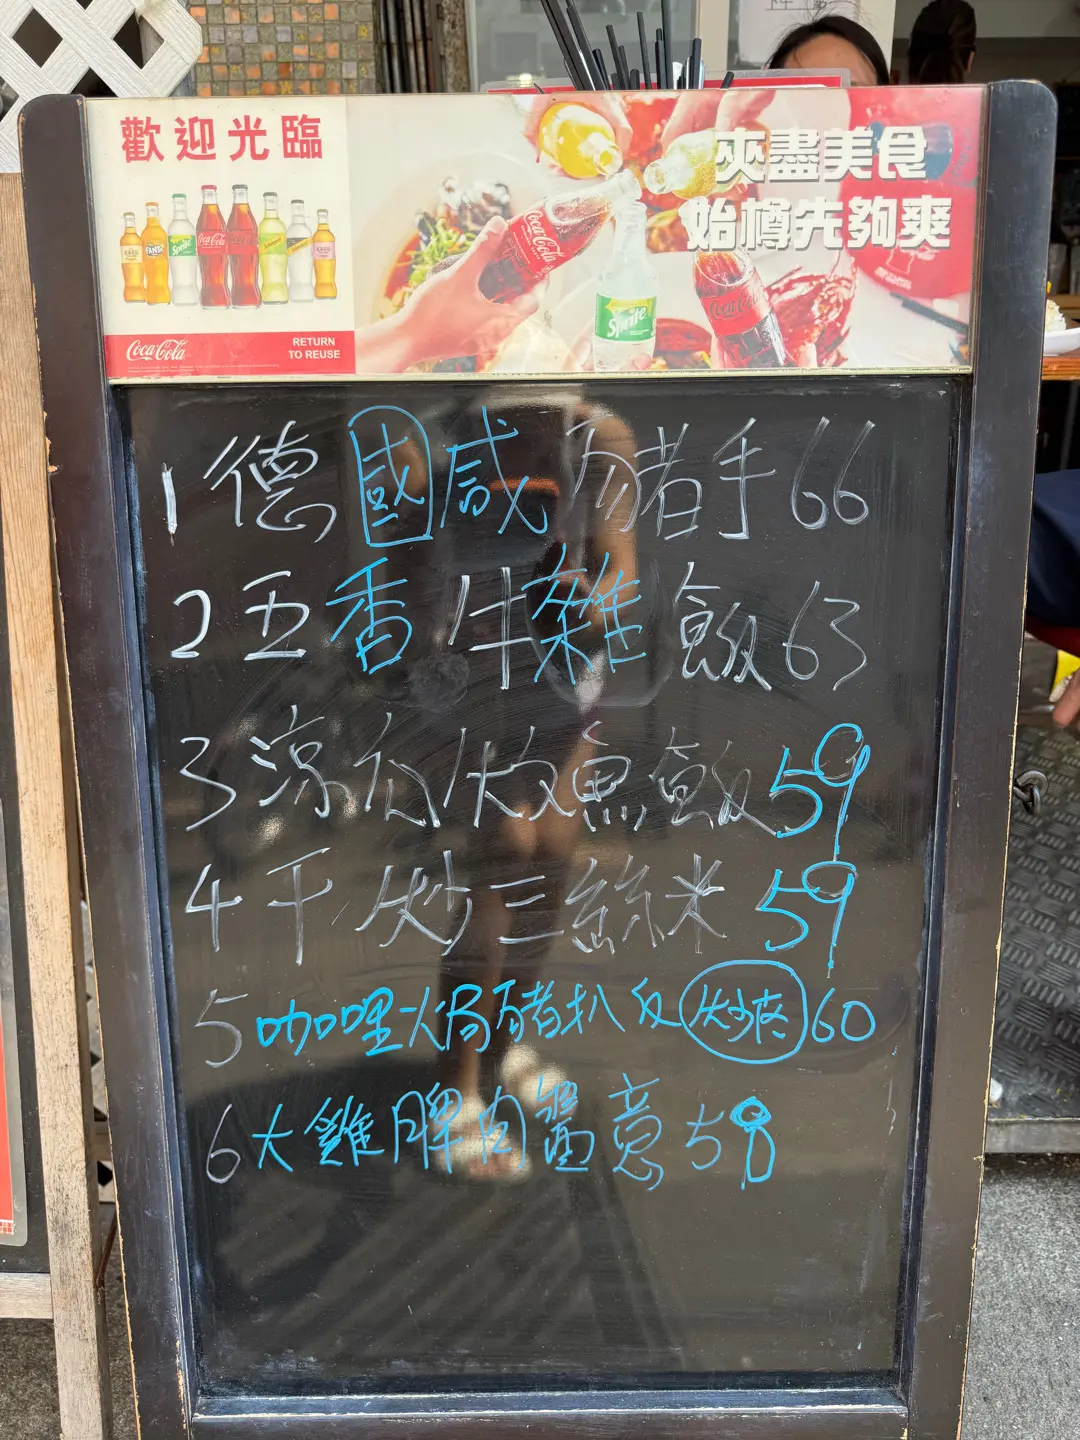 歡迎光臨
夾盡美食
始樽先夠爽
FANTA
Sprite
Coca-Cola
Coca-Cola
Sprite
Coca-Cola
Coca-Cola
RETURN
TO REUSE
1 德國咸豬手 66
2 五香牛雜飯 63
3 涼瓜炆魚飯 59
4 干炒三絲米 59
5 咖哩焗豬扒反 炒底 60
6 大雞脾肉醬意 59